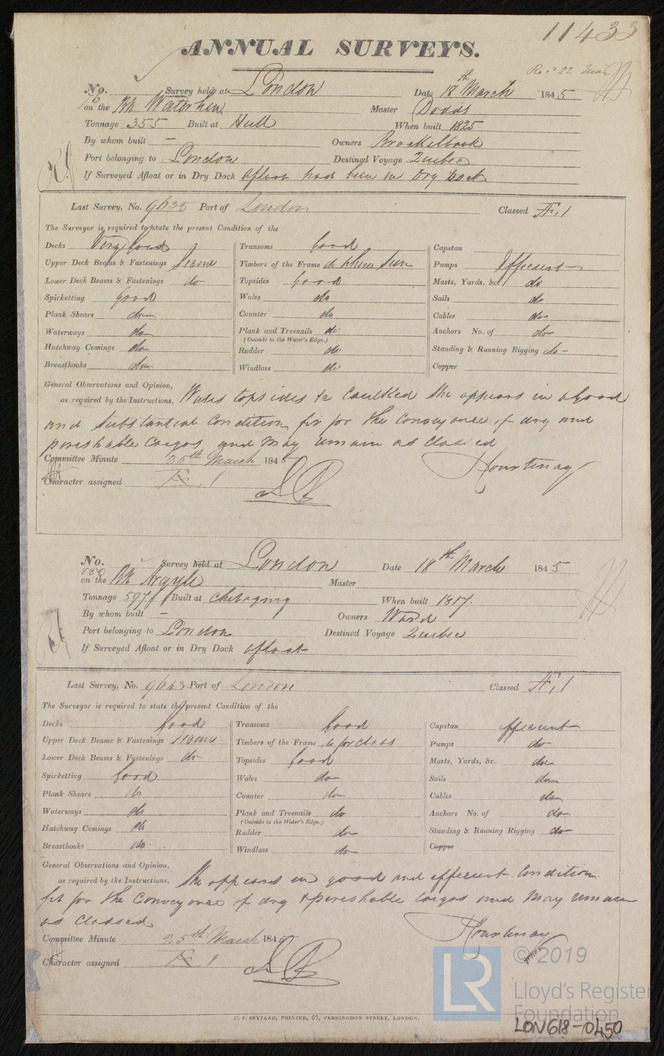 11433
ANNUAL SURVEYS.
No. Survey held at London Date 18th March 1845
on the Bk Waterhen Master Dodds
Tonnage 355 Built at Hull When built 1825
By whom built — Owners Brockelbank
Port belonging to London Destined Voyage Quebec
If Surveyed Afloat or in Dry Dock afloat had been in Dry Dock
Last Survey, No. 9635 Port of London Classed Æ.1
The Surveyor is required to state the present Condition of the
Decks Very Good Transoms Good Capstan
Upper Deck Beams & Fastenings Secure Timbers of the Frame where seen Pumps Efficient
Lower Deck Beams & Fastenings do Topsides Good Masts, Yards, &c. do
Spirketting Good Wales do Sails do
Plank Shears do Counter do Cables do
Waterways do Plank and Treenails do Anchors No. of do
(Outside to the Water's Edge.)
Hatchway Comings do Rudder do Standing & Running Rigging do
Breasthooks do Windlass do Copper
General Observations and Opinion,
as required by the Instructions. Wales topsides &c caulked She appears in a Good
and Substantial Condition fit for the Conveyance of dry and
perishable Cargos and May remain as Classed
Committee Minute 25th March 1845 Hourtenay
Character assigned Æ.1
No. Survey held at London Date 18th March 1845
on the Bk Argyle Master
Tonnage 597 Built at When built 1817
By whom built — Owners Ward
Port belonging to London Destined Voyage Quebec
If Surveyed Afloat or in Dry Dock afloat
Last Survey, No. 9663 Port of London Classed Æ.1
The Surveyor is required to state the present Condition of the
Decks Good Transoms Good Capstan Efficient
Upper Deck Beams & Fastenings Secure Timbers of the Frame Pumps do
Lower Deck Beams & Fastenings do Topsides Good Masts, Yards, &c. do
Spirketting Good Wales do Sails do
Plank Shears do Counter do Cables do
Waterways do Plank and Treenails do Anchors No. of do
(Outside to the Water's Edge.)
Hatchway Comings do Rudder do Standing & Running Rigging do
Breasthooks do Windlass do Copper
General Observations and Opinion,
as required by the Instructions. She appears in good and efficient Condition
fit for the Conveyance of dry & perishable Cargos and May remain
as Classed
Committee Minute 25th March 1845 Hourtenay
Character assigned Æ 1
© 2019
LR Lloyd's Register
Foundation
C. F. SEYFANG, PRINTED, 57, FARRINGDON STREET, LONDON.
LON618-0450